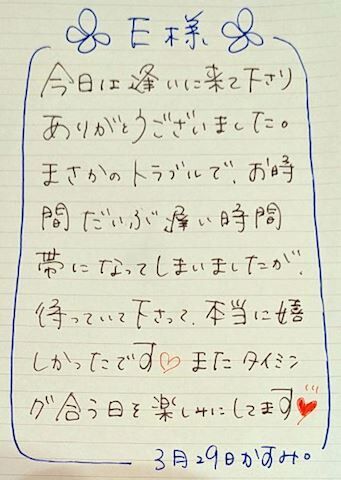 E様
今日は逢いに来て下さり
ありがとうございました。
まさかのトラブルで、お時
間だいぶ遅い時間
帯になってしまいましたが、
待っていて下さって、本当に嬉
しかったです♡またタイミン
グ合う日を楽しみにしてます♥
3月29日かすみ。